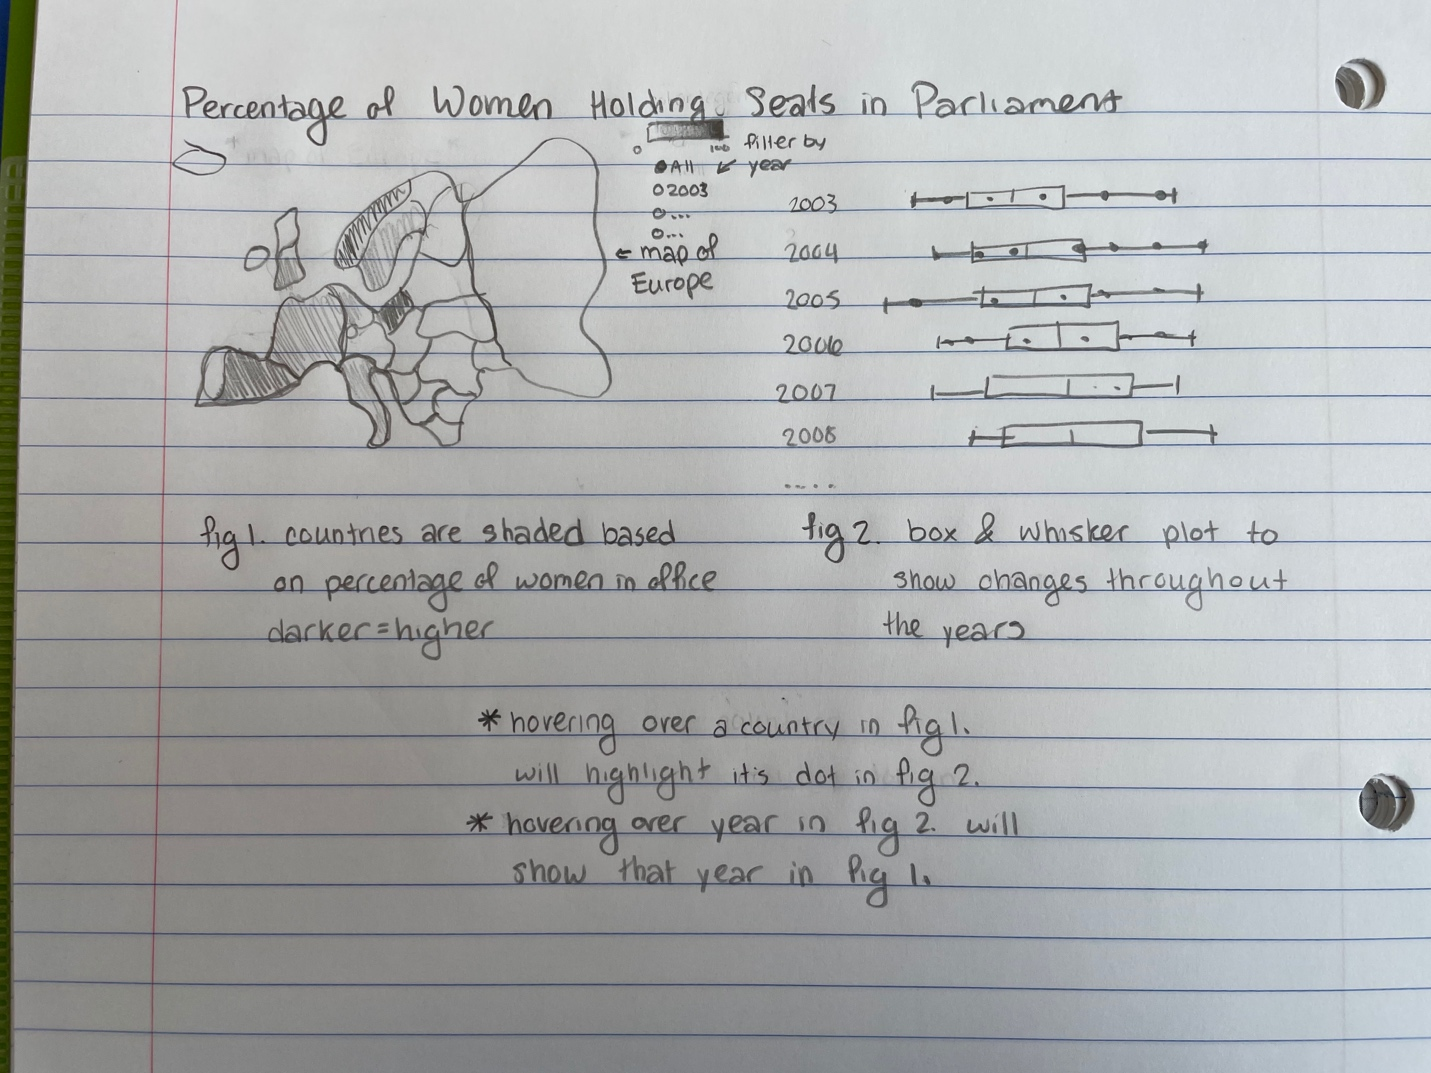 Percentage of Women Holding Seats in Parliament
0 100
filter by
year
All
2003
...
...
← map of
Europe
2003
2004
2005
2006
2007
2008
....
fig 1. countries are shaded based
on percentage of women in office
darker = higher
fig 2. box & whisker plot to
show changes throughout
the years
* hovering over a country in fig 1.
will highlight it's dot in fig 2.
* hovering over year in fig 2. will
show that year in fig 1.